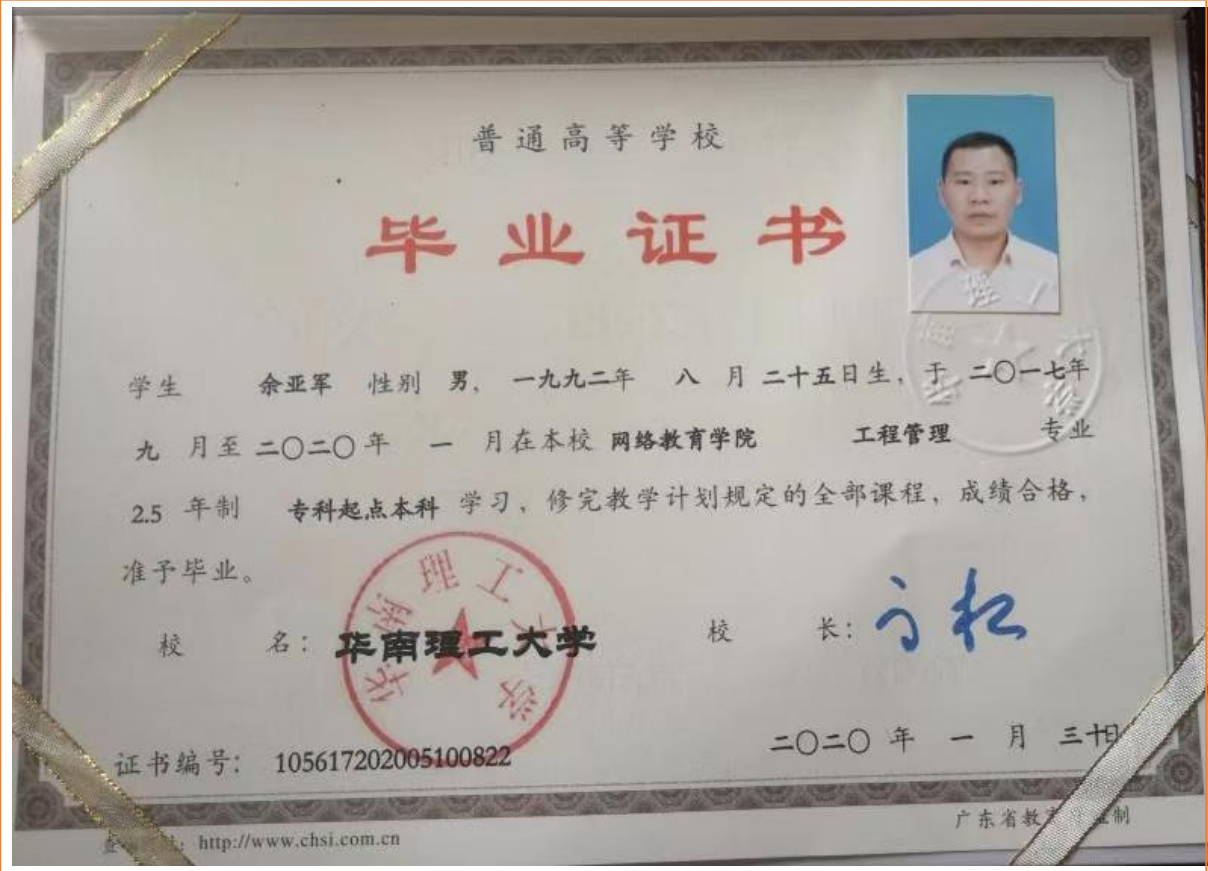 普通高等学校
毕业证书
学生 余亚军 性别 男, 一九九二年 八 月 二十五日生, 于 二〇一七年
九 月至 二〇二〇年 一 月在本校 网络教育学院 工程管理 专业
2.5 年制 专科起点本科 学习, 修完教学计划规定的全部课程, 成绩合格,
准予毕业。
校 名: 华南理工大学 校 长:
华南理工大学
二〇二〇 年 一 月 三十日
证书编号: 105617202005100822
http://www.chsi.com.cn
广东省教 制